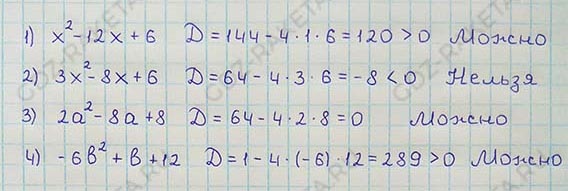 1) x²-12x+6 D=144-4·1·6=120>0 Можно
2) 3x²-8x+6 D=64-4·3·6=-8<0 Нельзя
3) 2a²-8a+8 D=64-4·2·8=0 Можно
4) -6b²+b+12 D=1-4·(-6)·12=289>0 Можно